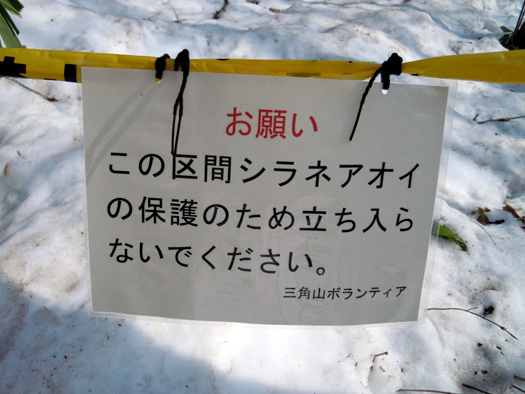 お願い
この区間シラネアオイ
の保護のため立ち入ら
ないでください。
三角山ボランティア